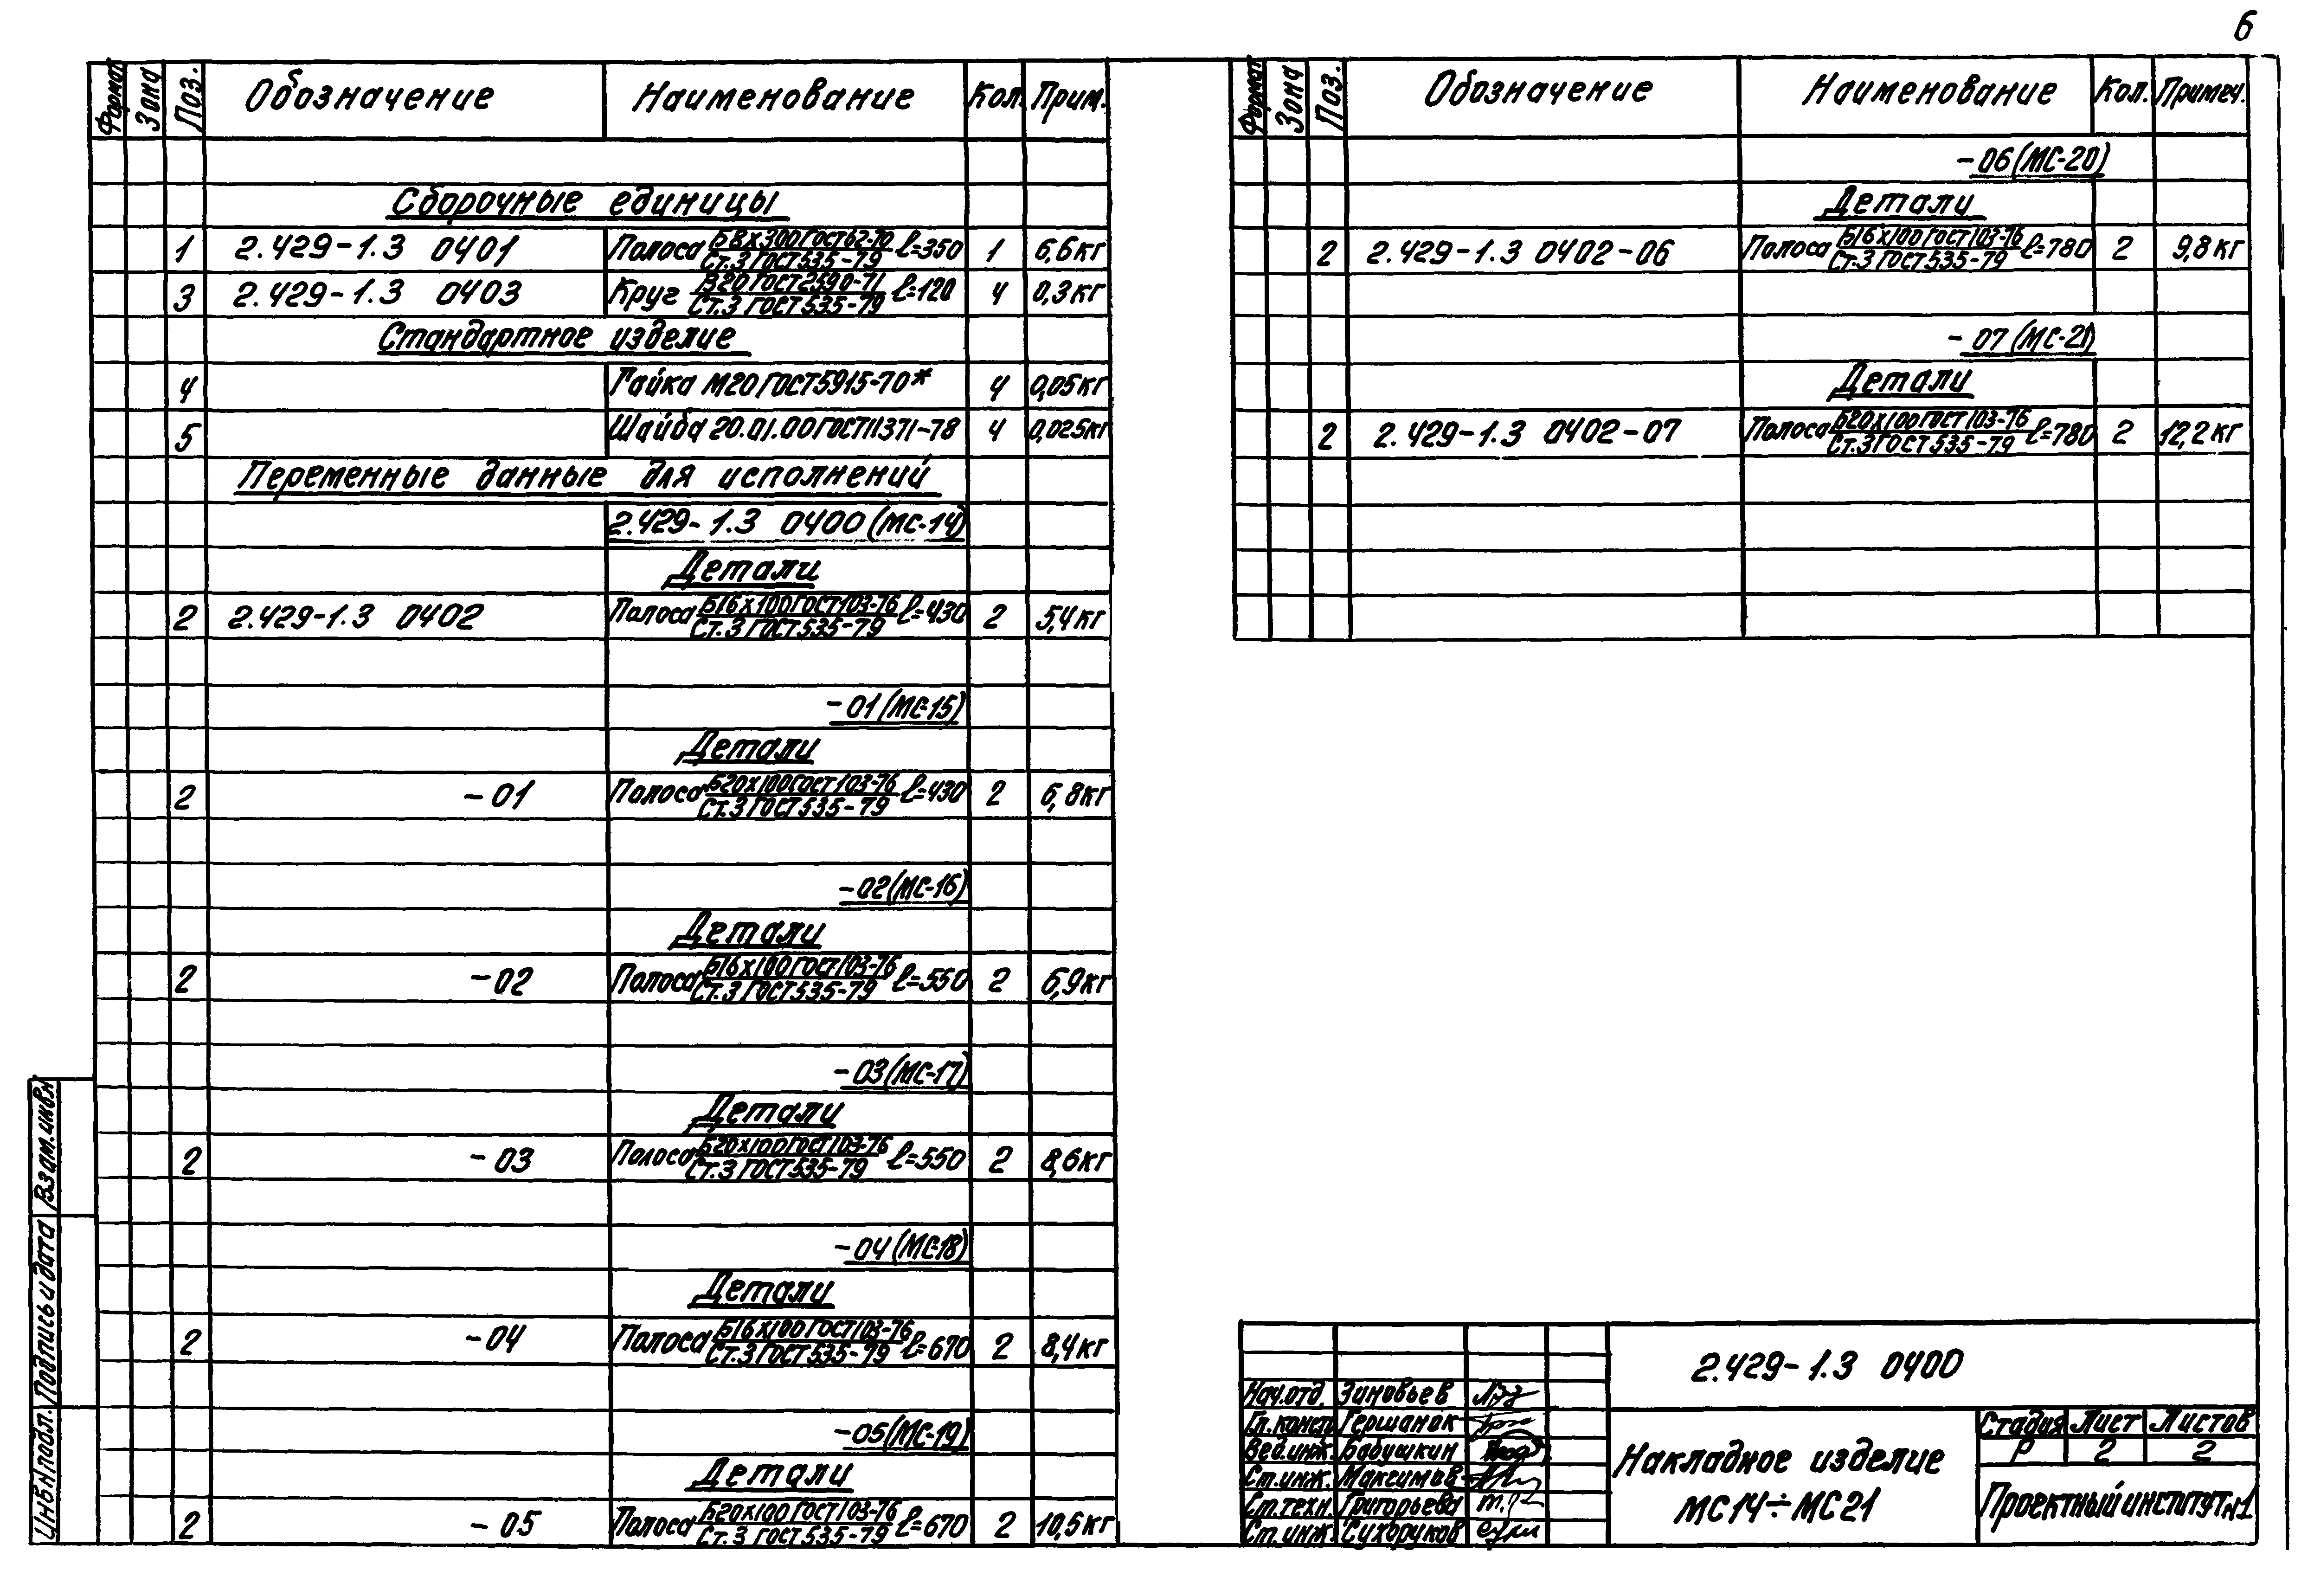 6
Формат Зона Поз. Обозначение Наименование Кол. Прим.
Сборочные единицы
1 2.429-1.3 0401 Полоса Б8х300 ГОСТ 82-70 / Ст.3 ГОСТ 535-79 ℓ=350 1 6,6кг
3 2.429-1.3 0403 Круг В20 ГОСТ 2590-71 / Ст.3 ГОСТ 535-79 ℓ=120 4 0,3кг
Стандартное изделие
4 Гайка М20 ГОСТ 5915-70* 4 0,05кг
5 Шайба 20.01.00 ГОСТ 11371-78 4 0,025кг
Переменные данные для исполнений
2.429-1.3 0400 (МС-14)
Детали
2 2.429-1.3 0402 Полоса Б16х100 ГОСТ 103-76 / Ст.3 ГОСТ 535-79 ℓ=430 2 5,4кг
-01 (МС-15)
Детали
2 -01 Полоса Б20х100 ГОСТ 103-76 / Ст.3 ГОСТ 535-79 ℓ=430 2 6,8кг
-02 (МС-16)
Детали
2 -02 Полоса Б16х100 ГОСТ 103-76 / Ст.3 ГОСТ 535-79 ℓ=550 2 6,9кг
-03 (МС-17)
Детали
2 -03 Полоса Б20х100 ГОСТ 103-76 / Ст.3 ГОСТ 535-79 ℓ=550 2 8,6кг
-04 (МС-18)
Детали
2 -04 Полоса Б16х100 ГОСТ 103-76 / Ст.3 ГОСТ 535-79 ℓ=670 2 8,4кг
-05 (МС-19)
Детали
2 -05 Полоса Б20х100 ГОСТ 103-76 / Ст.3 ГОСТ 535-79 ℓ=670 2 10,5кг
Формат Зона Поз. Обозначение Наименование Кол. Примеч.
-06 (МС-20)
Детали
2 2.429-1.3 0402-06 Полоса Б16х100 ГОСТ 103-76 / Ст.3 ГОСТ 535-79 ℓ=780 2 9,8кг
-07 (МС-21)
Детали
2 2.429-1.3 0402-07 Полоса Б20х100 ГОСТ 103-76 / Ст.3 ГОСТ 535-79 ℓ=780 2 12,2кг
Инв N подл. Подпись и дата Взам.инв.N
2.429-1.3 0400
Нач.отд. Зиновьев
Гл.конст. Гершанок
Вед.инж. Бабушкин
Ст.инж. Максимов
Ст.техн. Григорьева
Ст.инж. Сухоруков
Накладное изделие
МС14÷МС21
Стадия Лист Листов
Р 2 2
Проектный институт N1